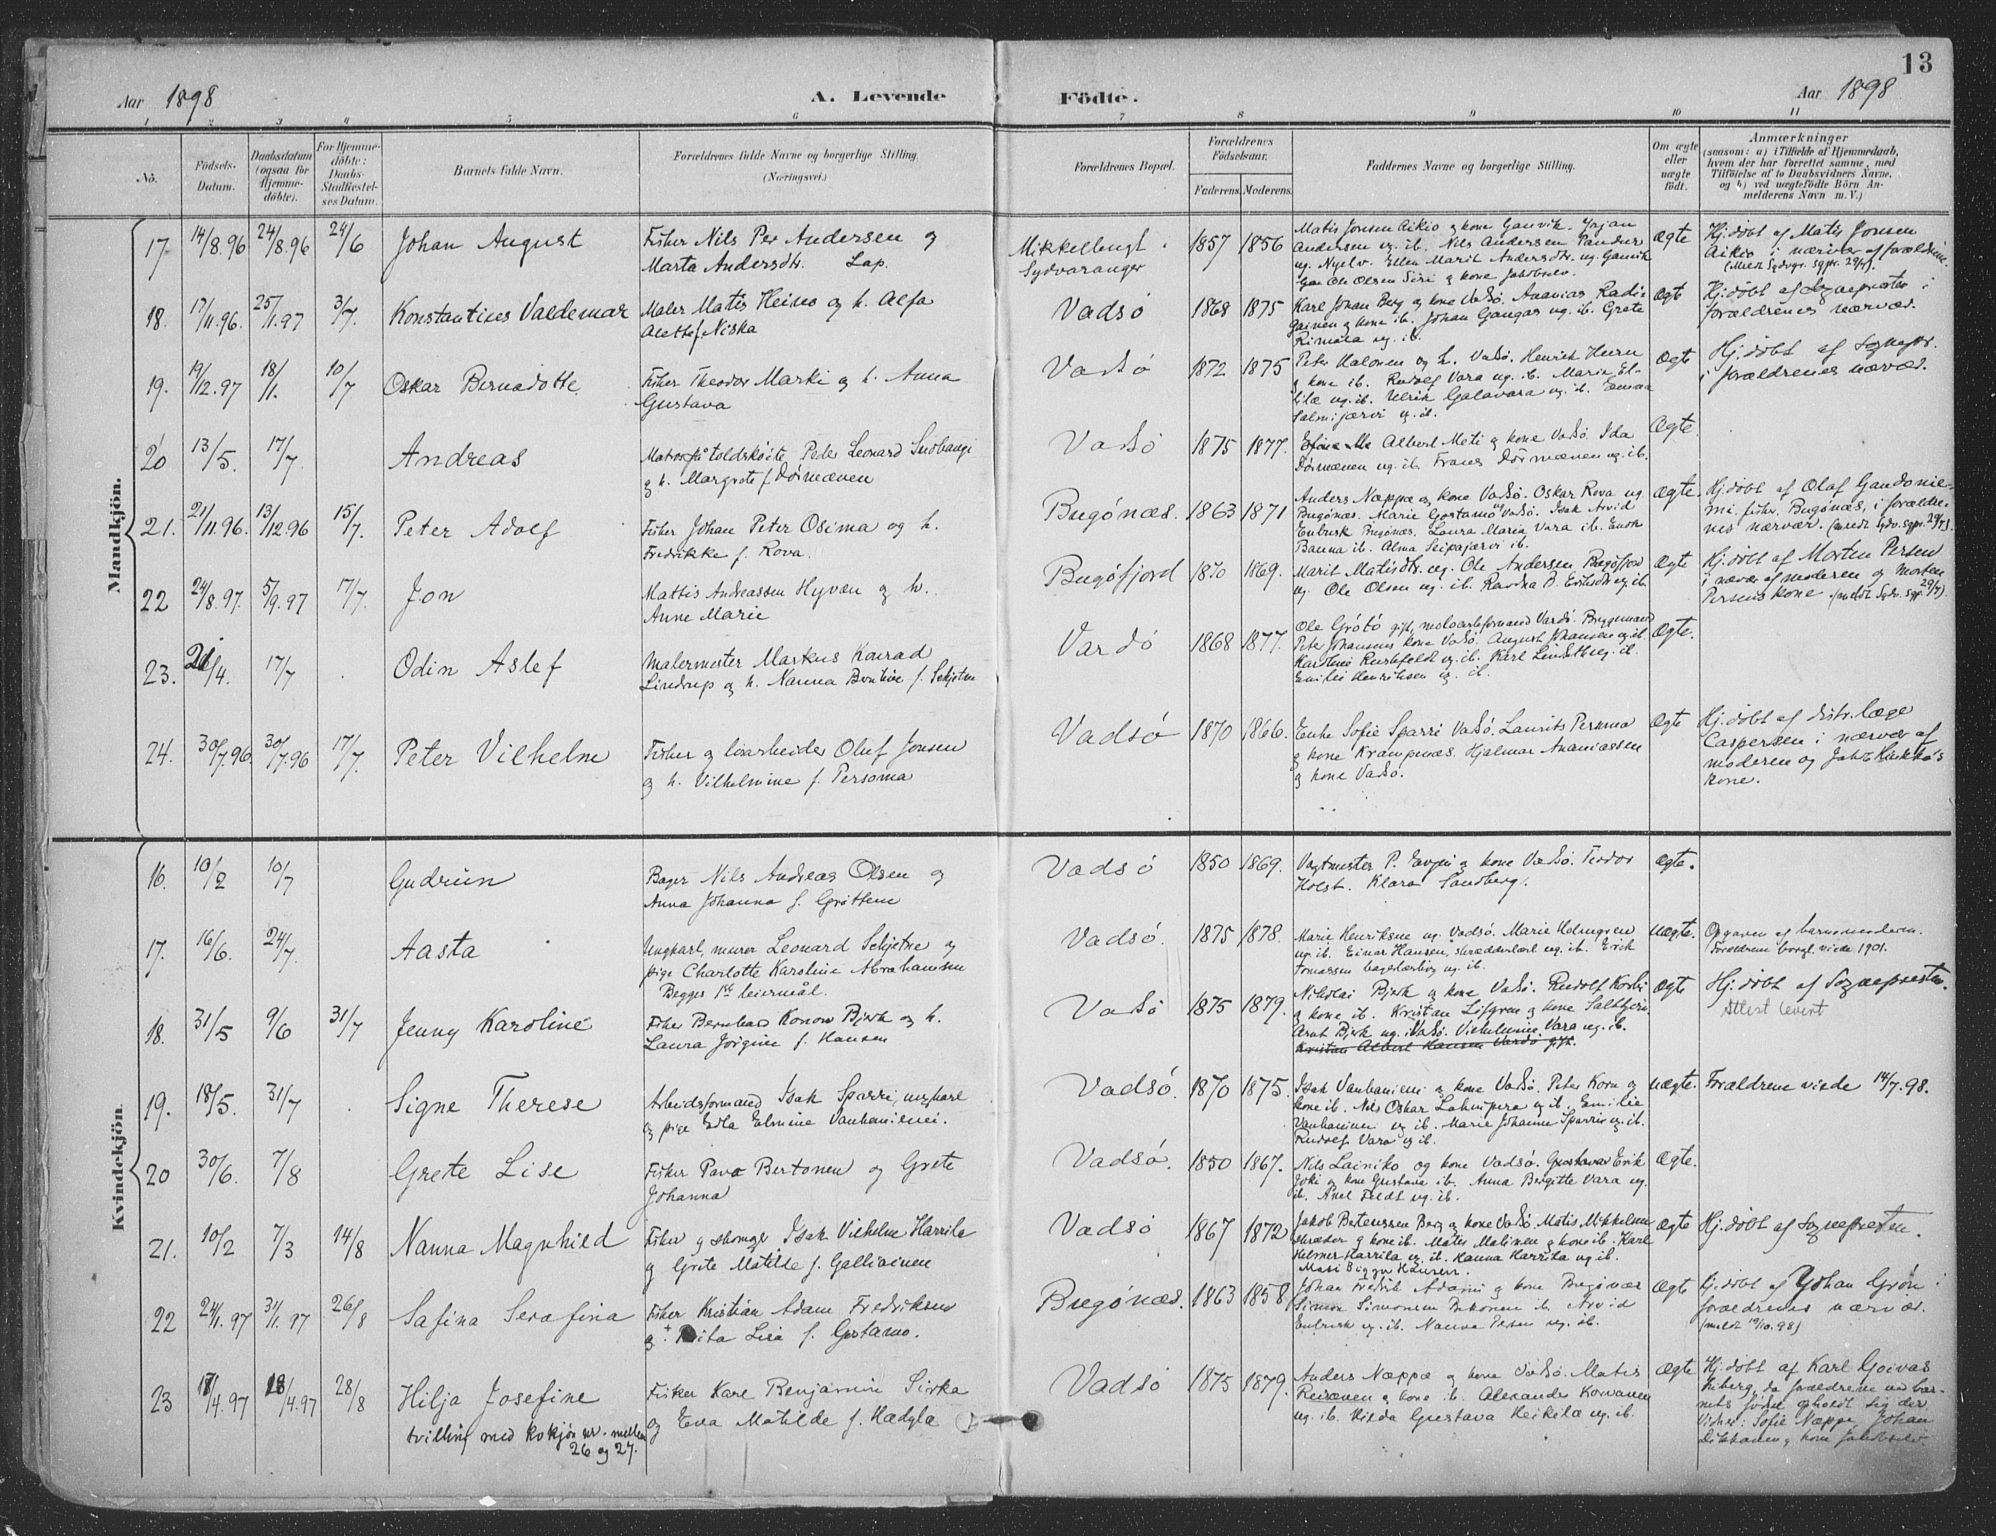 13
Aar 1898
A. Levende
Födte.
Aar 1898
1 2 3 4 5 6 7 8 9 10 11
No.
Födsels-
Datum.
Daabsdatum
(ogsaa for
Hjemme-
döbte).
For Hjemme-
döbte:
Daabs-
Stadfæstel-
ses Datum.
Barnets fulde Navn.
Forældrenes fulde Navne og borgerlige Stilling.
(Næringsvei.)
Forældrenes Bopæl.
Forældrenes
Födselsaar.
Faderens. Moderens.
Faddernes Navne og borgerlige Stilling.
Om ægte
eller
uægte
födt.
Anmærkninger
(saasom: a) i Tilfælde af Hjemmedaab,
hvem der har forrettet samme, med
Tilföielse af to Daabsvidners Navne,
og b) ved uægtefödte Börn An-
melderens Navn m. V.)
Mandkjön.
17. 14/8.96 24/8.96 24/6 Johan August
Fisker Nils Per Andersen og
Marta Andersdtr. Lap.
Mikkelsnegt
Sydvaranger
1857 1856
Matis Jonsen Aikio og kone Ganvik.
Andersen ug. ib. Nils Andersen
ug. Nyelv. Ellen Marit Andersdtr. ug. Ganvik
Ole Olsen Siri og kone Jakobselv.
Ægte
Hj. døbt af Matis Jonsen
Aikio i nærvær af forældrene
18. 17/11.96. 25/1.97 3/7. Konstantines Valdemar
Maler Matis Heino og h. Alfa
Alette f. Niska
Vadsö
1868 1875
Karl Johan Berg og kone Vadsö. Ananias Radi-
gainen og kone ib. Johan Gangas ug. ib. Grete
Rimala ug. ib.
Ægt
Hj. døbt af Sognepresten i
forældrenes nærvær.
19. 19/12.97 18/1. 10/7 Oskar Bernadotte.
Fisker Theodor Marki og h. Anna
Gustava
Vadsö
1872 1875
Peter Halonen og h. Vadsö. Henrik Huru
og kone ib. Rudolf Vara ug. ib. Maria El-
ug. ib. Ulrik Galavara ug. ib. Emma
Salmijærvi ug. ib.
Ægte
Hj. døbt af Sognepr.
i forældrenes nærvær.
20 13/5. 17/7. Andreas
Matros på toldskøite Peter Leonard
og h. Margrete f. Dørmænen
Vadsö
1875 1877.
Albert Meti og kone Vadsö. Ida
Dørmænen ug. ib. Frans Dørmænen ug. ib.
Ægte.
21. 21/11.96. 13/12.96 15/7. Peter Adolf
Fisker Johan Peter Osima og h.
Fredrikke f. Rova.
Bugönæs.
1863 1871
Anders Næppæ og kone Vadsö. Oskar Rova ug
Bugönæs. Marie Gostamo Vadsö. Isak Arvid
Enbusk Bugönæs. Laura Maria Vara ib.
Banna ib. Alma Seipajærvi ib.
Ægte
Hj. døbt af Olaf Gandonie-
mi fisker, Bugönæs, i forældre-
nes nærvær.
22 24/8.97. 5/9.97 17/7. Jon
Mattis Andreassen Hyvæn og h.
Anne Marie
Bugöfjord
1870 1869.
Marit Matisdtr. ug. Ole Andersen Bugöfjord
ug. Ole Olsen ug. ib. Ravdna P. Eriksdtr ug. ib
Ægte
Hj. døbt af Morten Persen
i nærvær af moderen og Morten
Persens kone
23. 21/4. 17/7 Odin Aslef
Malermester Markus Konrad
Lindrup og h. Nanna Bentine f. Schjetne
Vardö
1868 1877.
Ole Grötö gift, Vardö.
Peter Johansens kone Vadsö. August Johansen ug. ib
Rushfeldt ug. ib. Karl ug. ib.
Emilie Henriksen ug. ib.
Ægte.
24. 30/7.96 30/7.96 17/7. Peter Vilhelm
Fisker og løsarbeider Oluf Jonsen
og h. Vilhelmine f. Persoma
Vadsö
1870 1866.
Enke Sofie Sparri Vadsö. Laurits Persoma
og kone Krampenæs. Hjalmar Ananiassen
og kone Vadsö.
Ægte
Hj. døbt af distr. læge
Caspersen i nærvær af
moderen og Jakob Huikko's
kone.
Kvindekjön.
16. 10/2 10/7 Gudrun
Bager Nils Andreas Olsen og
Anna Johanna f. Gröttem
Vadsö
1850 1869.
Vagtmester P. og kone Vadsö. Teodor
Holst. Klara Sandberg.
Ægte.
17. 16/6. 24/7. Aasta
Ungkarl, murer Leonard Schjetne og
pige Charlotte Karoline Abrahamsen
Begges 1ste leiermål.
Vadsö.
1875 1878.
Marie Henriksen ug. Vadsö. Marie Holmgren
ug. ib. Einar Hansen, skrædderlærl. ug. ib. Erik
Tomassen bagerlærling ug. ib.
uægte.
Opgaven af barnemoderen.
Forældrene borgl. viede 1901.
18. 31/5 9/6 31/7 Jenny Karoline
Fisker Bernhard Konow Bjerk og h.
Laura Jørgine f. Hansen
Vadsö
1875 1879.
Nikolai Bjerk og kone Vadsö. Rudolf Korbi
og kone ib. Kristan og kone
Arnt Bjerk ug. Vadsö. Vilhelmine Vara ug. ib.
Kristan Albert Hansen Vardö gift.
Ægte
Hj. døbt af Sognepresten.
Attest levert
19. 18/5. 31/7 Signe Therese
Arbeidsformand Isak Sparri, ungkarl
og pige Edla Elmine Vanhaniemi.
Vadsö.
1870 1875.
Isak Vanhaniemi og kone Vadsö. Peter Korva og
kone ib. Nils Oskar Lahnipera ug ib. Emilie
Vanhaniemi ug ib. Marie Johanne Sparri ug. ib.
Rudolf Vara ug ib.
uægte.
Forældrene viede 14/7.98.
20 30/6. 7/8 Grete Lise
Fisker Pava Bertonen og Grete
Johanna
Vadsö.
1850 1867.
Nils Lainiko og kone Vadsö. Erik
Joki og kone Gustava ib. Anna Bergitte Vara ug.
ib. Axel Feldt ug. ib.
Ægte.
21. 10/2 7/3 14/8 Nanna Magnhild
Fisker og skomgr Isak Vilhelm Harrila
og Grete Matilde f. Gallivinen
Vadsö
1867 1872
Jakob Bertenssen Berg og kone Vadsö. Matis Mikkelsen
skræder og kone ib. Mates Matinen og kone ib. Karl
Helmer Harrila ug. ib. Hanna Harrila ug ib.
Ægte
Hj. døbt af Sognepresten.
22 24/1.97 31/1.97 26/8 Safina Serafina
Fisker Kristian Adam Fredriksen
og Lisa f. Gostamo.
Bugönæs.
1863 1858
Johan Fredrik Adami og kone Bugönæs
Simon Simonsen ib. Arvid
Enbusk ug. ib. Nanna Persen ug. ib.
Ægte
Hj. døbt af Johan Grön i
forældrenes nærvær.
(meldt 19/10.98)
23 17/4.97 18/4.97 28/8 Hilja Josefine
tvilling med kvkjøn nr. mellem
26 og 27.
Fisker Karl Benjamin Sirka
og Eva Matilde f. Kædgla
Vadsö
1875 1879.
Anders Næppæ og kone Vadsö. Mates
Reisænen og kone ib. Alexander Korvanen
ug. ib. Hilda Gustava Heikila ug. ib.
Ægte
Hj. døbt af Karl Goivas
Kiberg, da forældrene ved bar-
nets födsel opholdt sig der
Vidner: Sofie Næppe, Johan
og kone Jakobselv.